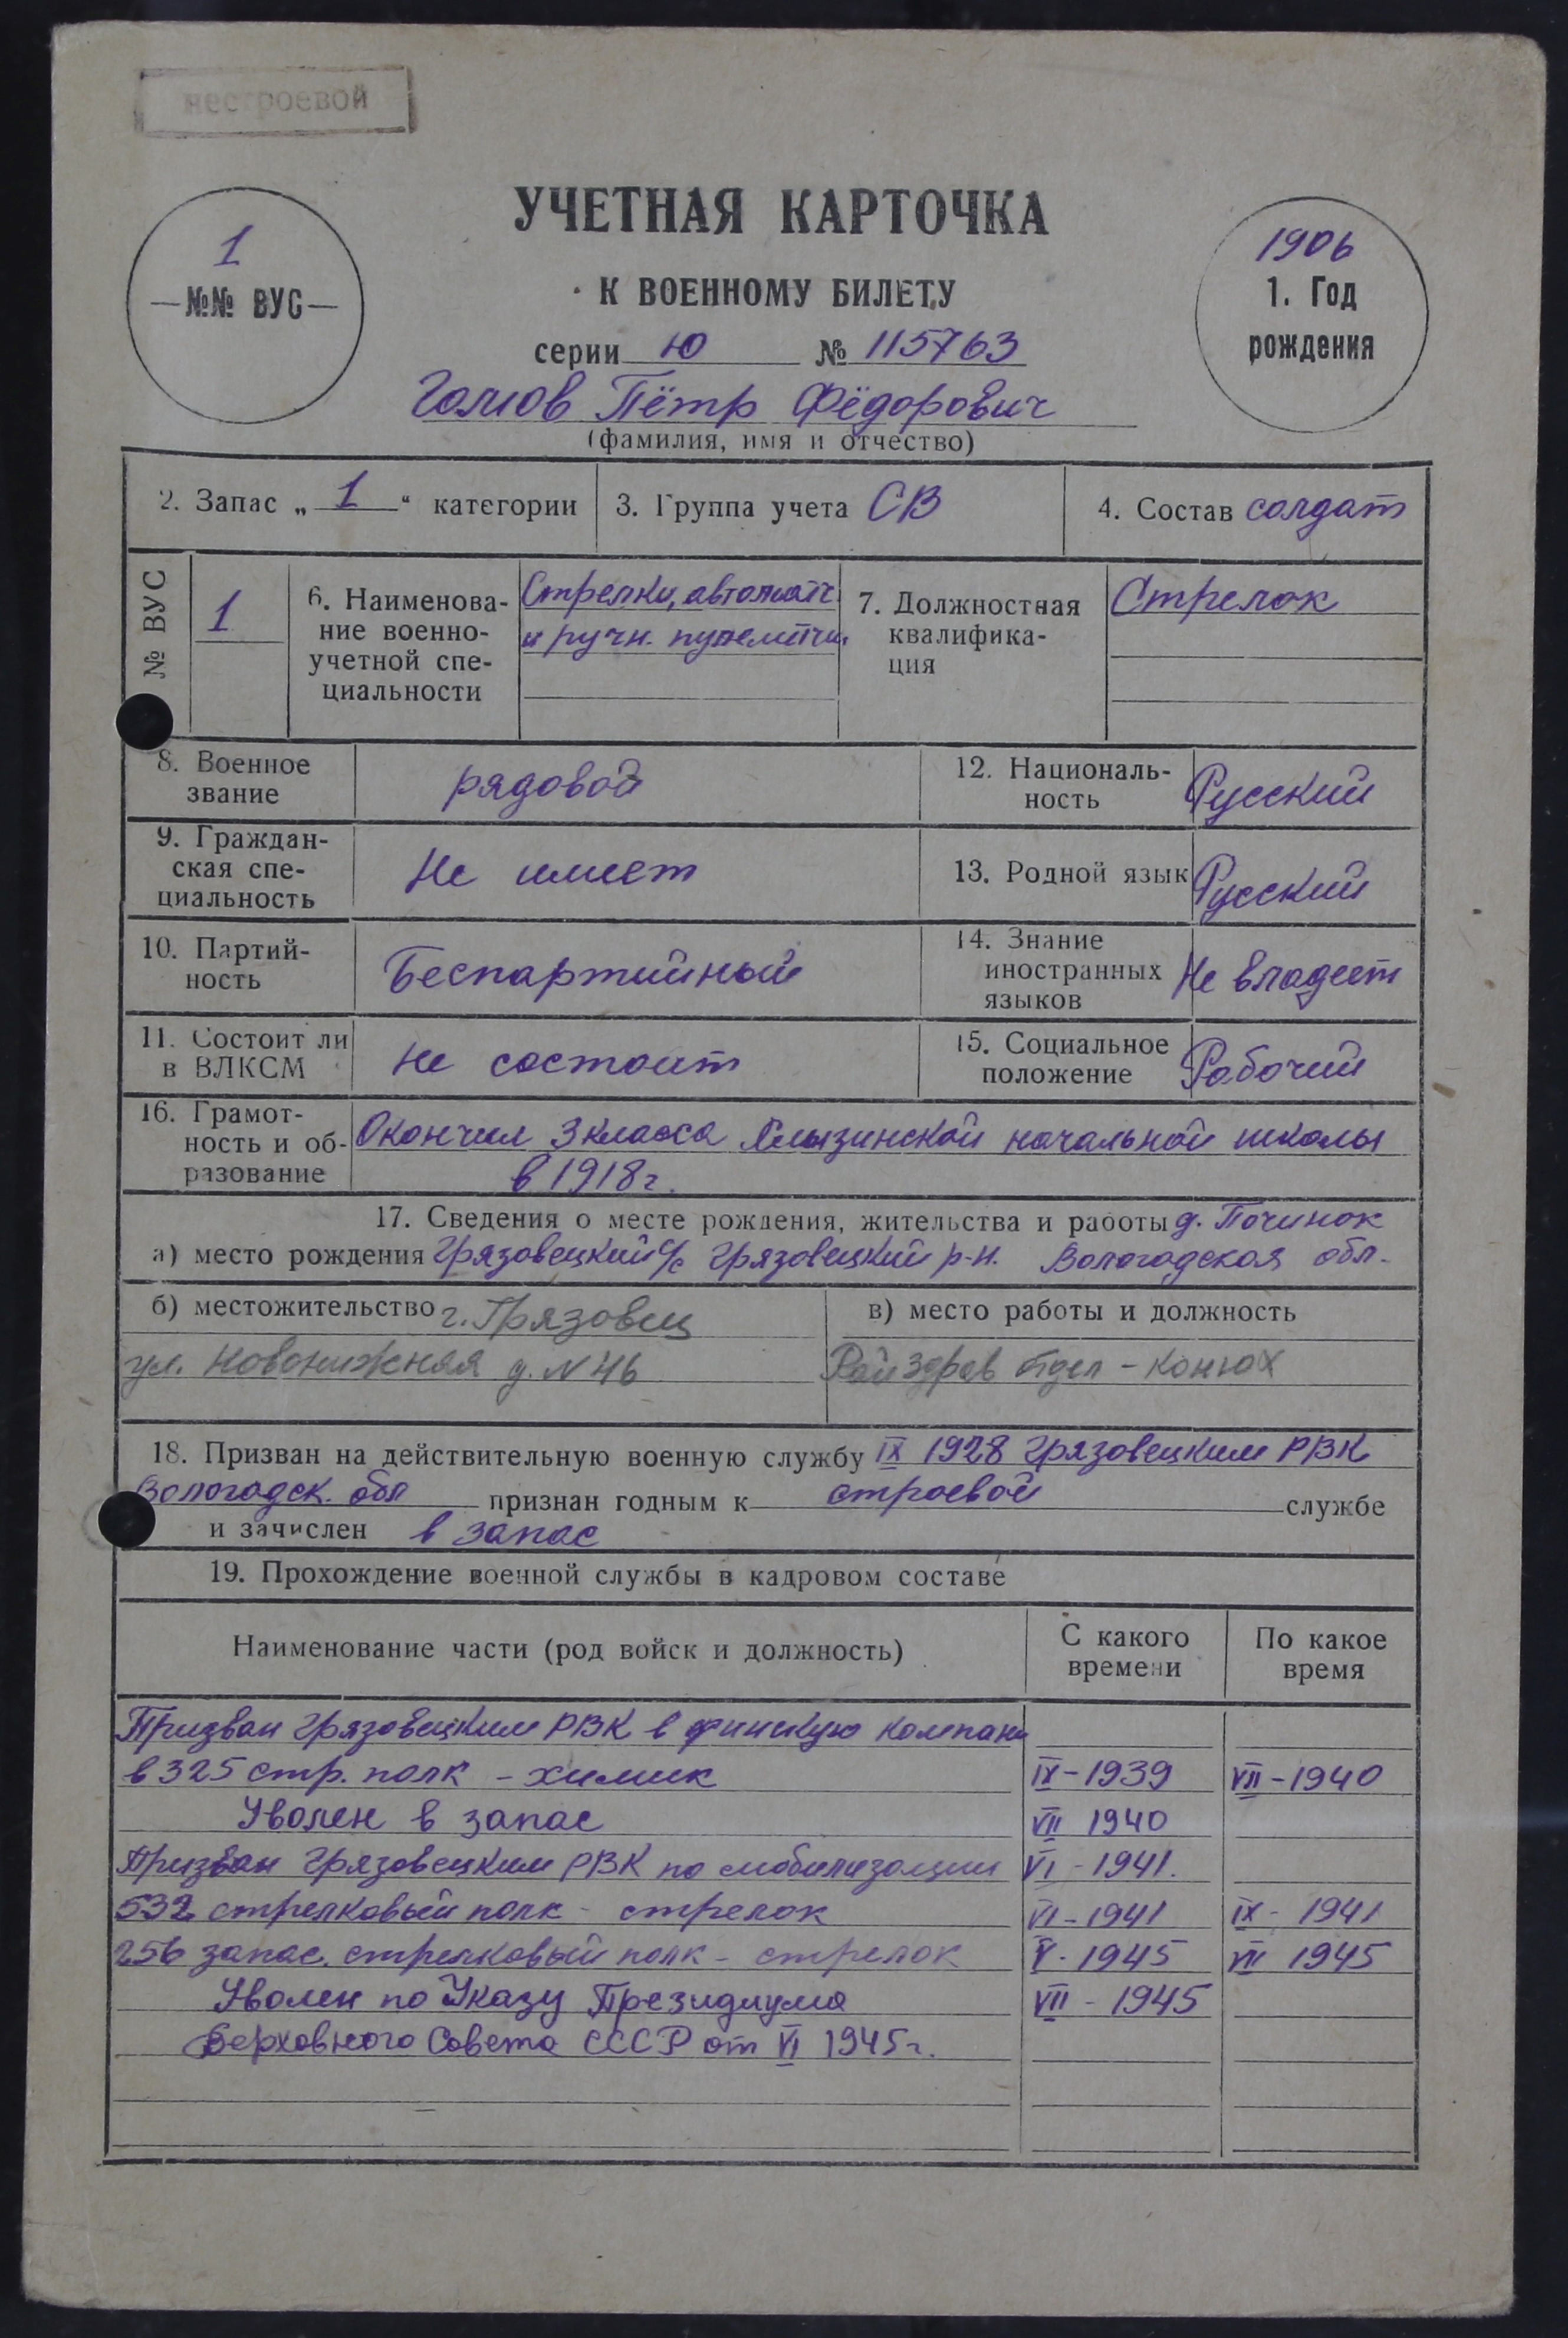 нестроевой
УЧЕТНАЯ КАРТОЧКА
К ВОЕННОМУ БИЛЕТУ
1
—№№ ВУС—
1906
1. Год
рождения
серии Ю № 115763
Пётр Фёдорович
(фамилия, имя и отчество)
2. Запас „ 1 “ категории
3. Группа учета СВ
4. Состав солдат
№ ВУС
1
6. Наименова-
ние военно-
учетной спе-
циальности
Стрелки, автоматч.
и ручн. пулемётчи.
7. Должностная
квалифика-
ция
Стрелок
8. Военное
звание
рядовой
12. Националь-
ность
Русский
9. Граждан-
ская спе-
циальность
Не имеет
13. Родной язык Русский
10. Партий-
ность
Беспартийный
14. Знание
иностранных
языков
Не владеет
11. Состоит ли
в ВЛКСМ
Не состоит
15. Социальное
положение
Рабочий
16. Грамот-
ность и об-
разование
Окончил 3 класса начальной школы
в 1918 г.
17. Сведения о месте рождения, жительства и работы д. Починок
а) место рождения Грязовецкий с/с Грязовецкий р-н. Вологодская обл.
б) местожительство г. Грязовец
ул. Новонижная д. N 46
в) место работы и должность
Райздрав отдел - конюх
18. Призван на действительную военную службу IX 1928 Грязовецким РВК
Вологодск. обл признан годным к строевой службе
и зачислен в запас
19. Прохождение военной службы в кадровом составе
Наименование части (род войск и должность)
С какого
времени
По какое
время
Призван Грязовецким РВК в финскую компани
в 325 стр. полк - химик IX-1939 VII-1940
Уволен в запас VII 1940
Призван Грязовецким РВК по мобилизации VI - 1941.
532 стрелковый полк - стрелок VI-1941 IX - 1941
256 запас. стрелковый полк - стрелок V - 1945 VII 1945
Уволен по Указу Президиума VII - 1945
Верховного Совета СССР от VI 1945 г.